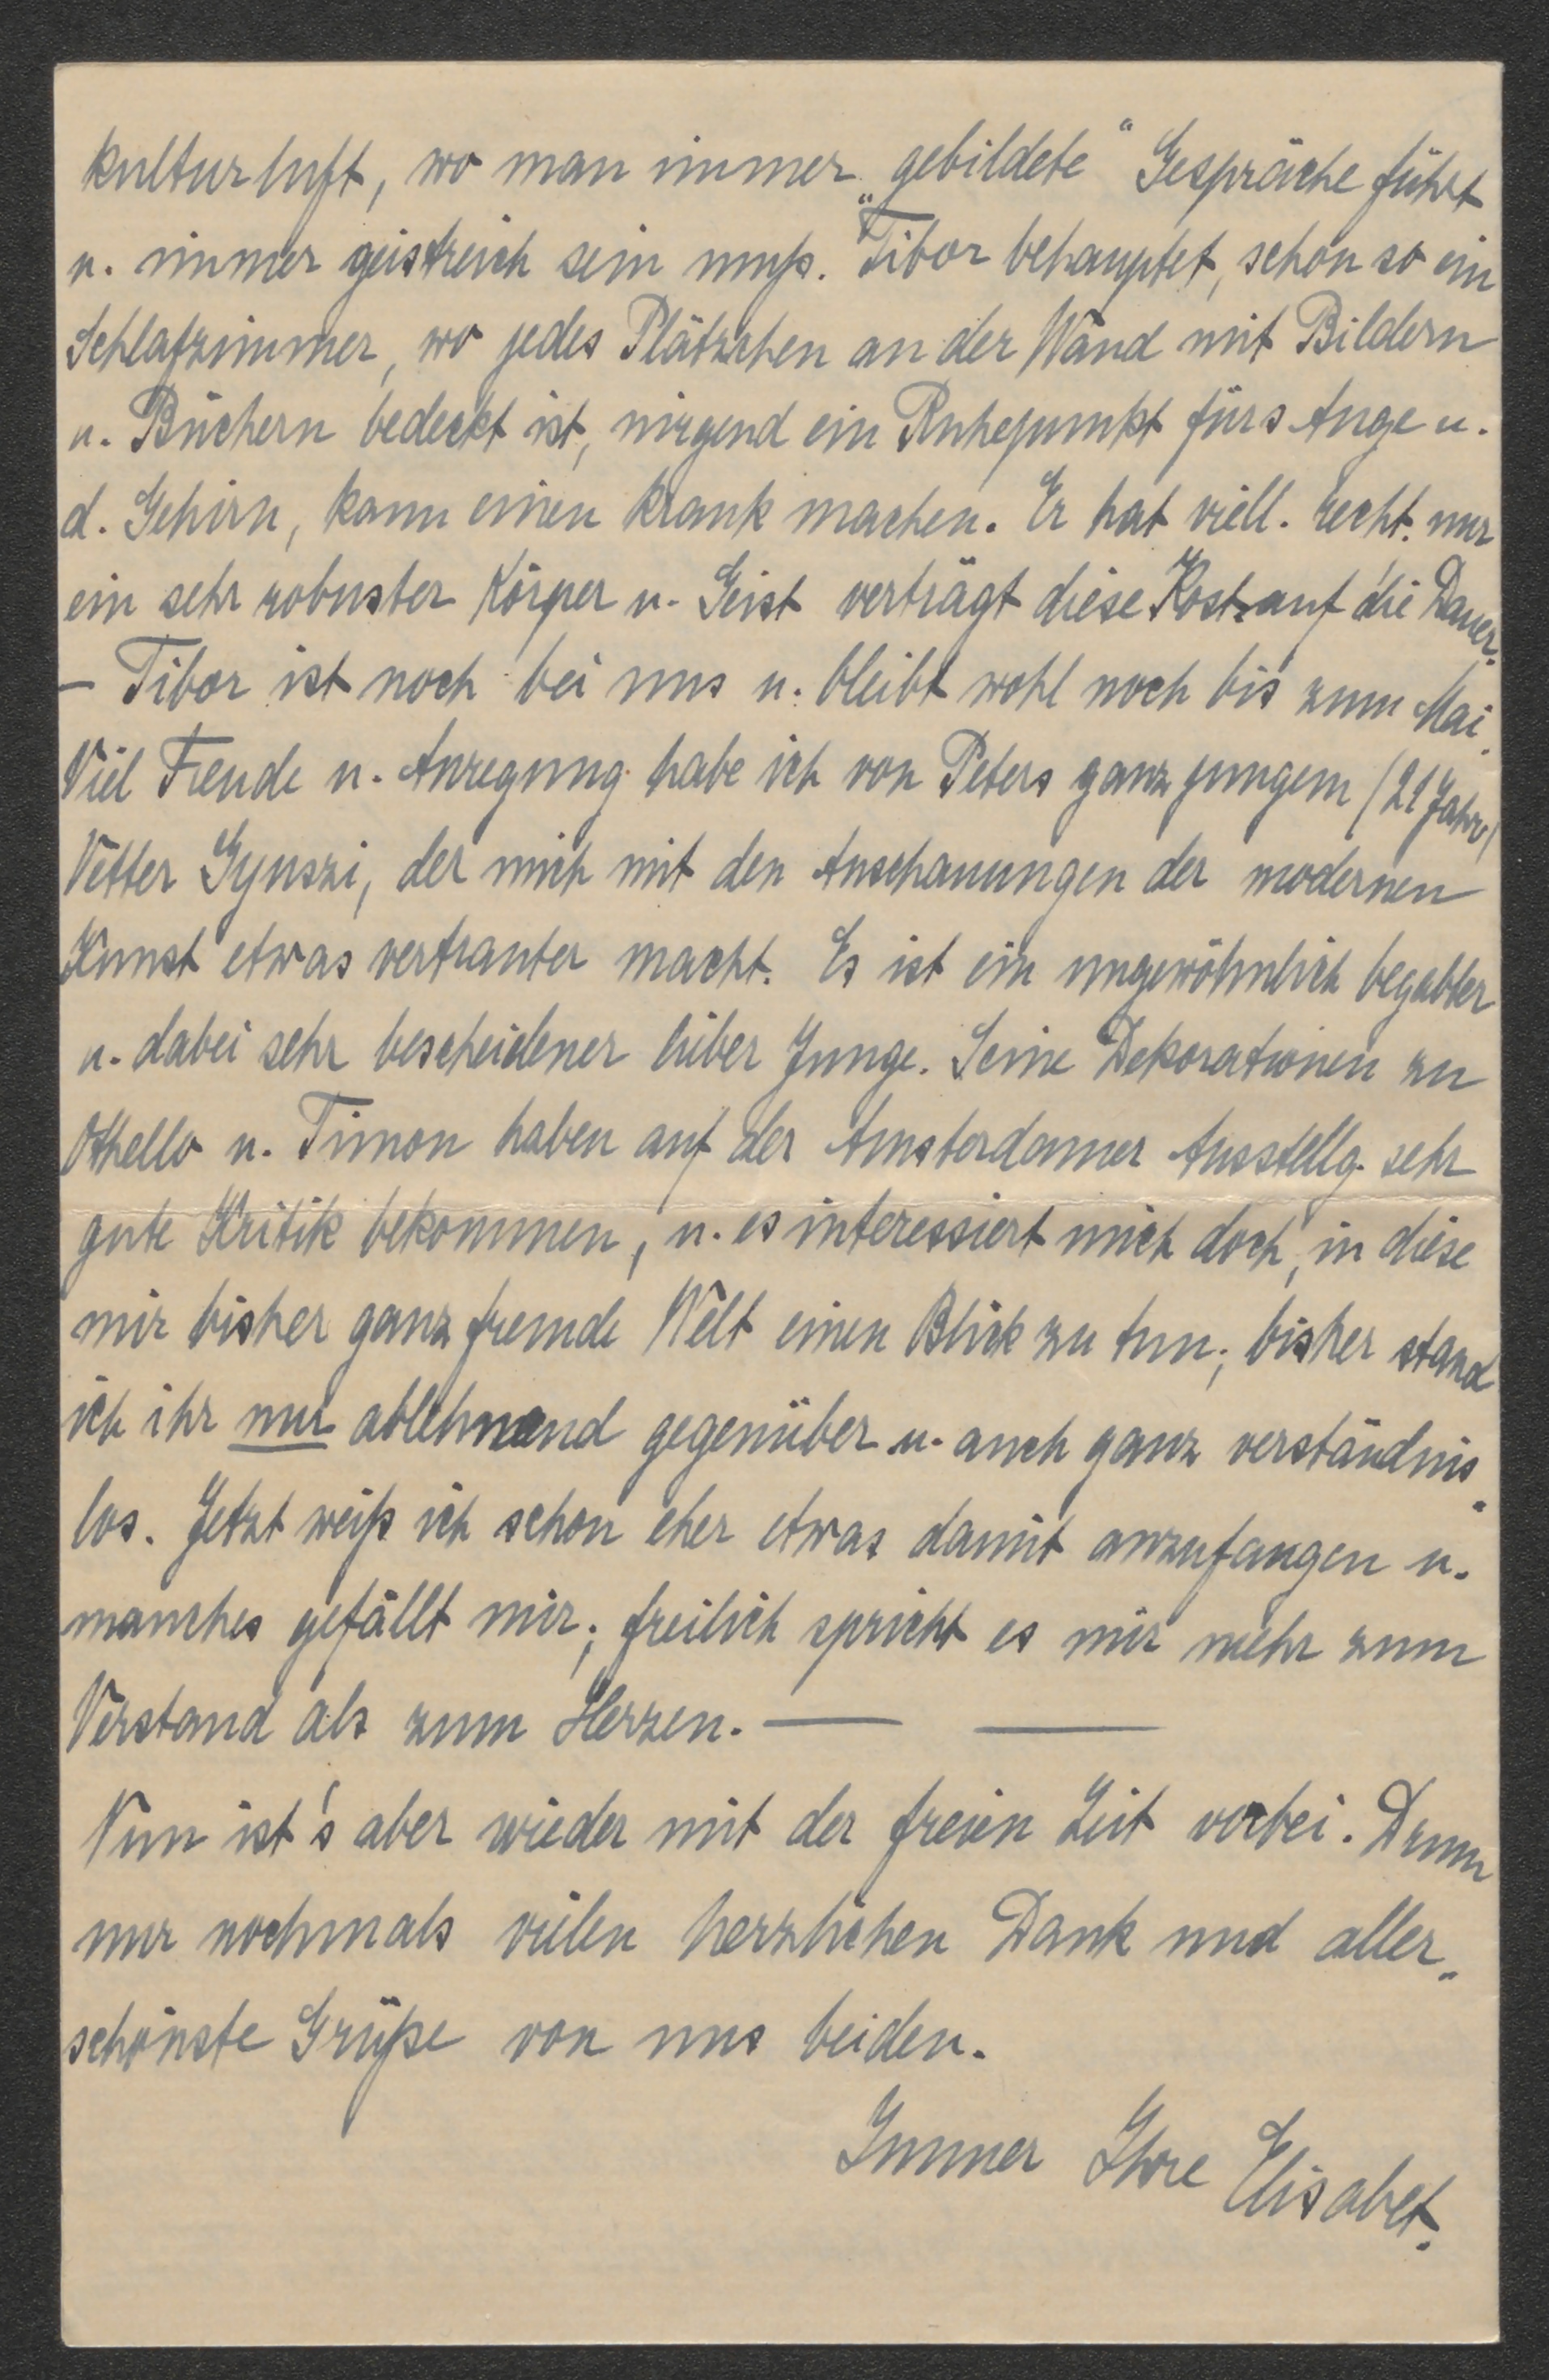 Kulturluft, wo man immer „gebildete“ Gespräche führt
u. immer geistreich sein muß. Tibor behauptet, schon so ein
Schlafzimmer, wo jedes Plätzchen an der Wand mit Bildern
u. Büchern bedeckt ist, nirgend ein Ruhepunkt fürs Auge u.
d. Gehirn, kann einen krank machen. Er hat viell. recht. nur
ein sehr robuster Körper u. Geist verträgt diese Kost auf die Dauer.
– Tibor ist noch bei uns u. bleibt wohl noch bis zum Mai.
Viel Freude u. Anregung habe ich von Peters ganz jungem (21 Jahre)
Vetter Gyuszi, der mich mit den Anschauungen der modernen
Kunst etwas vertrauter macht. Es ist ein ungewöhnlich begabter
u. dabei sehr bescheidener lieber Junge. Seine Dekorationen zu
Othello u. Timon haben auf der Amsterdamer Ausstellg. sehr
gute Kritik bekommen, u. es interessiert mich doch, in diese
mir bisher ganz fremde Welt einen Blick zu tun; bisher stand
ich ihr nur ablehnend gegenüber u. auch ganz verständnis-
los. Jetzt weiß ich schon eher etwas damit anzufangen u.
manches gefällt mir; freilich spricht es mir mehr zum
Verstand als zum Herzen. — —
Nun ist's aber wieder mit der freien Zeit vorbei. Drum
nur nochmals vielen herzlichen Dank und aller-
schönste Grüße von uns beiden.
Immer Ihre Elisabet.